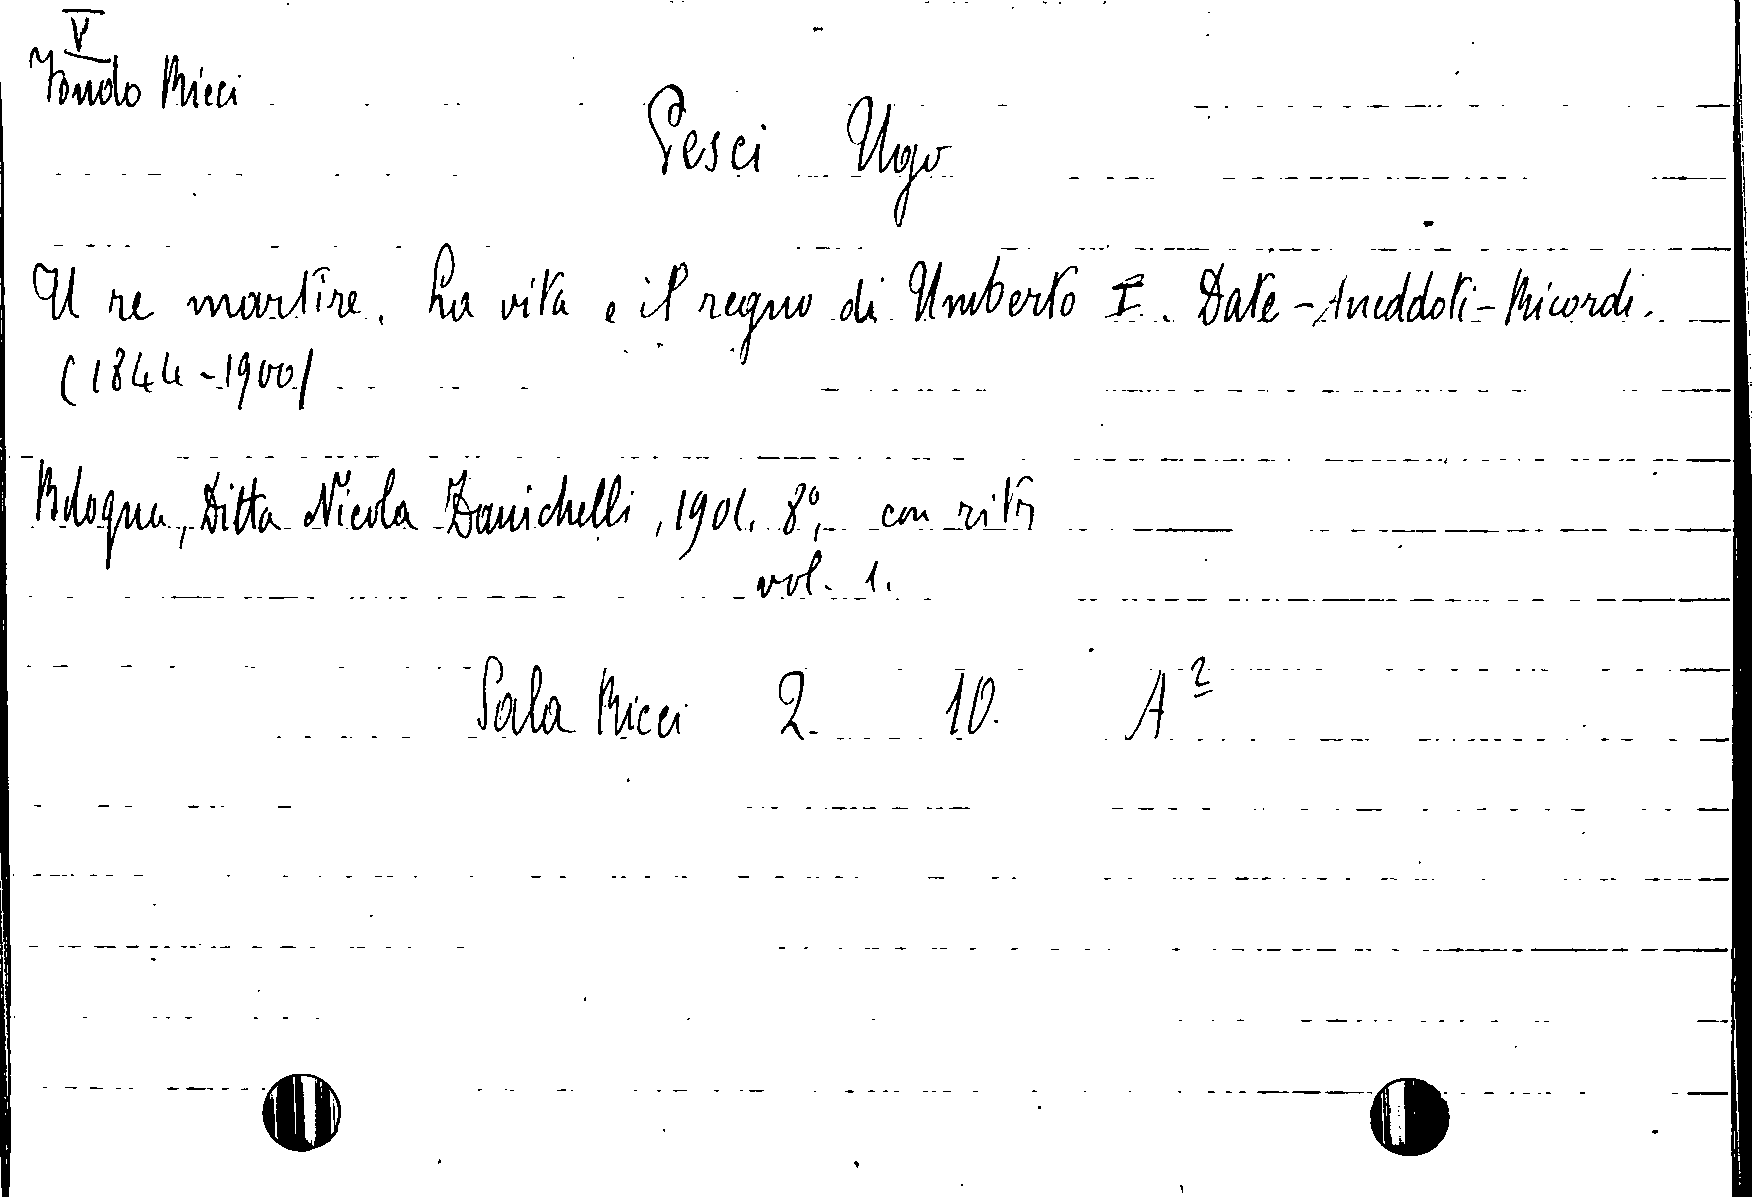 V
Fondo Ricci
Pesci Ugo
Il re martire. La vita e il regno di Umberto I. Date - Aneddoti - Ricordi.
(1844-1900)
Bologna, Ditta Nicola Zanichelli, 1901. 8°, con ritr
vol. 1.
Sala Ricci 2. 10. A²